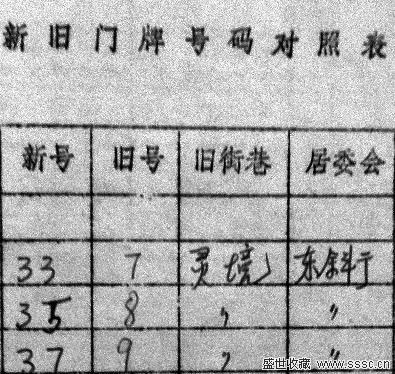 新旧门牌号码对照表
新号 旧号 旧街巷 居委会
33 7 灵境 东斜街
35 8 〃 〃
37 9 〃 〃
盛世收藏 www.sssc.cn